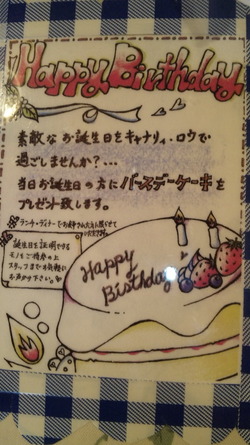 Happy Birthday
素敵なお誕生日をキャナリィ・ロウで
過ごしませんか?...
当日お誕生日の方にバースデーケーキを
プレゼント致します。
誕生日を証明できる
モノをご持参の上
スタッフまでお気軽に
お声かけ下さい。
Happy
Birthday